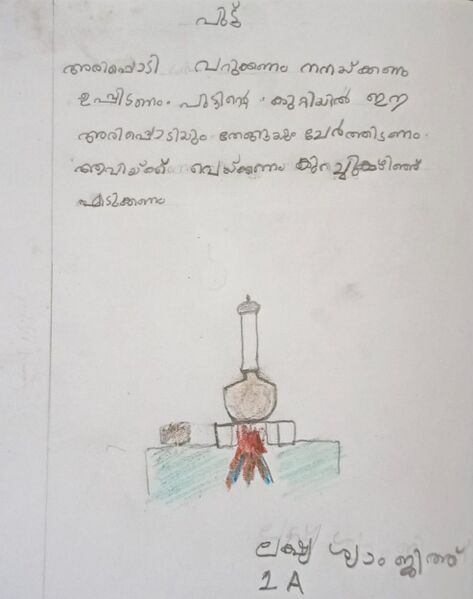 പുട്ട്
അരിപ്പൊടി വറുക്കണം നനയ്ക്കണം
ഉപ്പിടണം. പുട്ടിന്റെ കുറ്റിയിൽ ഈ
അരിപ്പൊടിയും തേങ്ങയും ചേർത്തിടണം.
ആവിയ്ക്ക് വെയ്ക്കണം കുറച്ചുകഴിഞ്ഞ്
എടുക്കണം
ലക്ഷ്യ ശ്യാംജിത്ത്
1 A